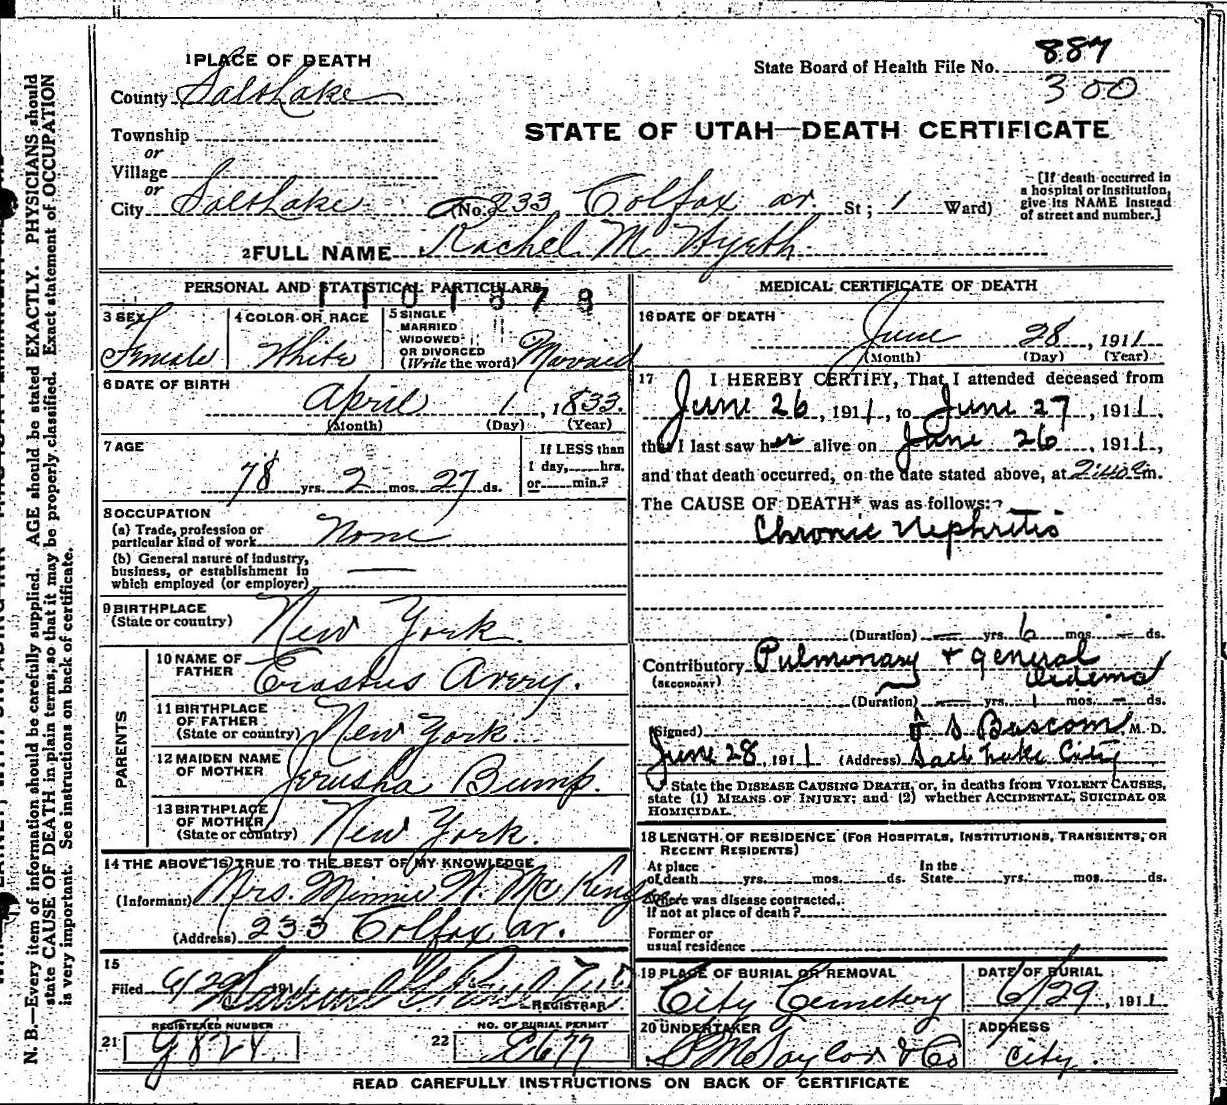 1 PLACE OF DEATH
State Board of Health File No. 887
300
County Salt Lake
Township
or
Village
or
City Salt Lake
STATE OF UTAH—DEATH CERTIFICATE
(No. 233 Colfax av. St; 1 Ward)
[If death occurred in
a hospital or institution,
give its NAME instead
of street and number.]
2 FULL NAME Rachel M Wyeth
PERSONAL AND STATISTICAL PARTICULARS
1101878
3 SEX
Female
4 COLOR OR RACE
White
5 SINGLE
MARRIED
WIDOWED
OR DIVORCED
(Write the word) Married
6 DATE OF BIRTH
April 1, 1833.
(Month) (Day) (Year)
7 AGE
78 yrs. 2 mos. 27 ds.
If LESS than
1 day, hrs.
or min.?
8 OCCUPATION
(a) Trade, profession or
particular kind of work None
(b) General nature of industry,
business, or establishment in
which employed (or employer)
9 BIRTHPLACE
(State or country) New York.
PARENTS
10 NAME OF
FATHER Erastus Avery.
11 BIRTHPLACE
OF FATHER
(State or country) New York
12 MAIDEN NAME
OF MOTHER Jerusha Bump.
13 BIRTHPLACE
OF MOTHER
(State or country) New York.
14 THE ABOVE IS TRUE TO THE BEST OF MY KNOWLEDGE
(Informant) Mrs. Minnie W. Mc
(Address) 233 Colfax av.
15
Filed 6/29 191
REGISTRAR
REGISTERED NUMBER
21 G824
NO. OF BURIAL PERMIT
22 E677
MEDICAL CERTIFICATE OF DEATH
16 DATE OF DEATH
June 28, 1911
(Month) (Day) (Year)
17 I HEREBY CERTIFY, That I attended deceased from
June 26, 1911, to June 27, 1911,
that I last saw her alive on June 26, 1911,
and that death occurred, on the date stated above, at 2:40 a m.
The CAUSE OF DEATH* was as follows:
Chronic Nephritis
(Duration) — yrs. 6 mos. — ds.
Contributory Pulmonary + general
(SECONDARY) Oedema
(Duration) — yrs. 1 mos. — ds.
(Signed) S Bascom M. D.
June 28, 1911 (Address) Salt Lake City
State the DISEASE CAUSING DEATH, or, in deaths from VIOLENT CAUSES,
state (1) MEANS OF INJURY; and (2) whether ACCIDENTAL, SUICIDAL OR
HOMICIDAL.
18 LENGTH OF RESIDENCE (FOR HOSPITALS, INSTITUTIONS, TRANSIENTS, OR
RECENT RESIDENTS)
At place
of death yrs. mos. ds.
In the
State yrs. mos. ds.
Where was disease contracted,
If not at place of death?
Former or
usual residence
19 PLACE OF BURIAL OR REMOVAL
City Cemetery
DATE OF BURIAL
6/29, 1911
20 UNDERTAKER
S M Taylor & Co
ADDRESS
City.
READ CAREFULLY INSTRUCTIONS ON BACK OF CERTIFICATE
N. B.—Every item of information should be carefully supplied. AGE should be stated EXACTLY. PHYSICIANS should
state CAUSE OF DEATH in plain terms, so that it may be properly classified. Exact statement of OCCUPATION
is very important. See instructions on back of certificate.